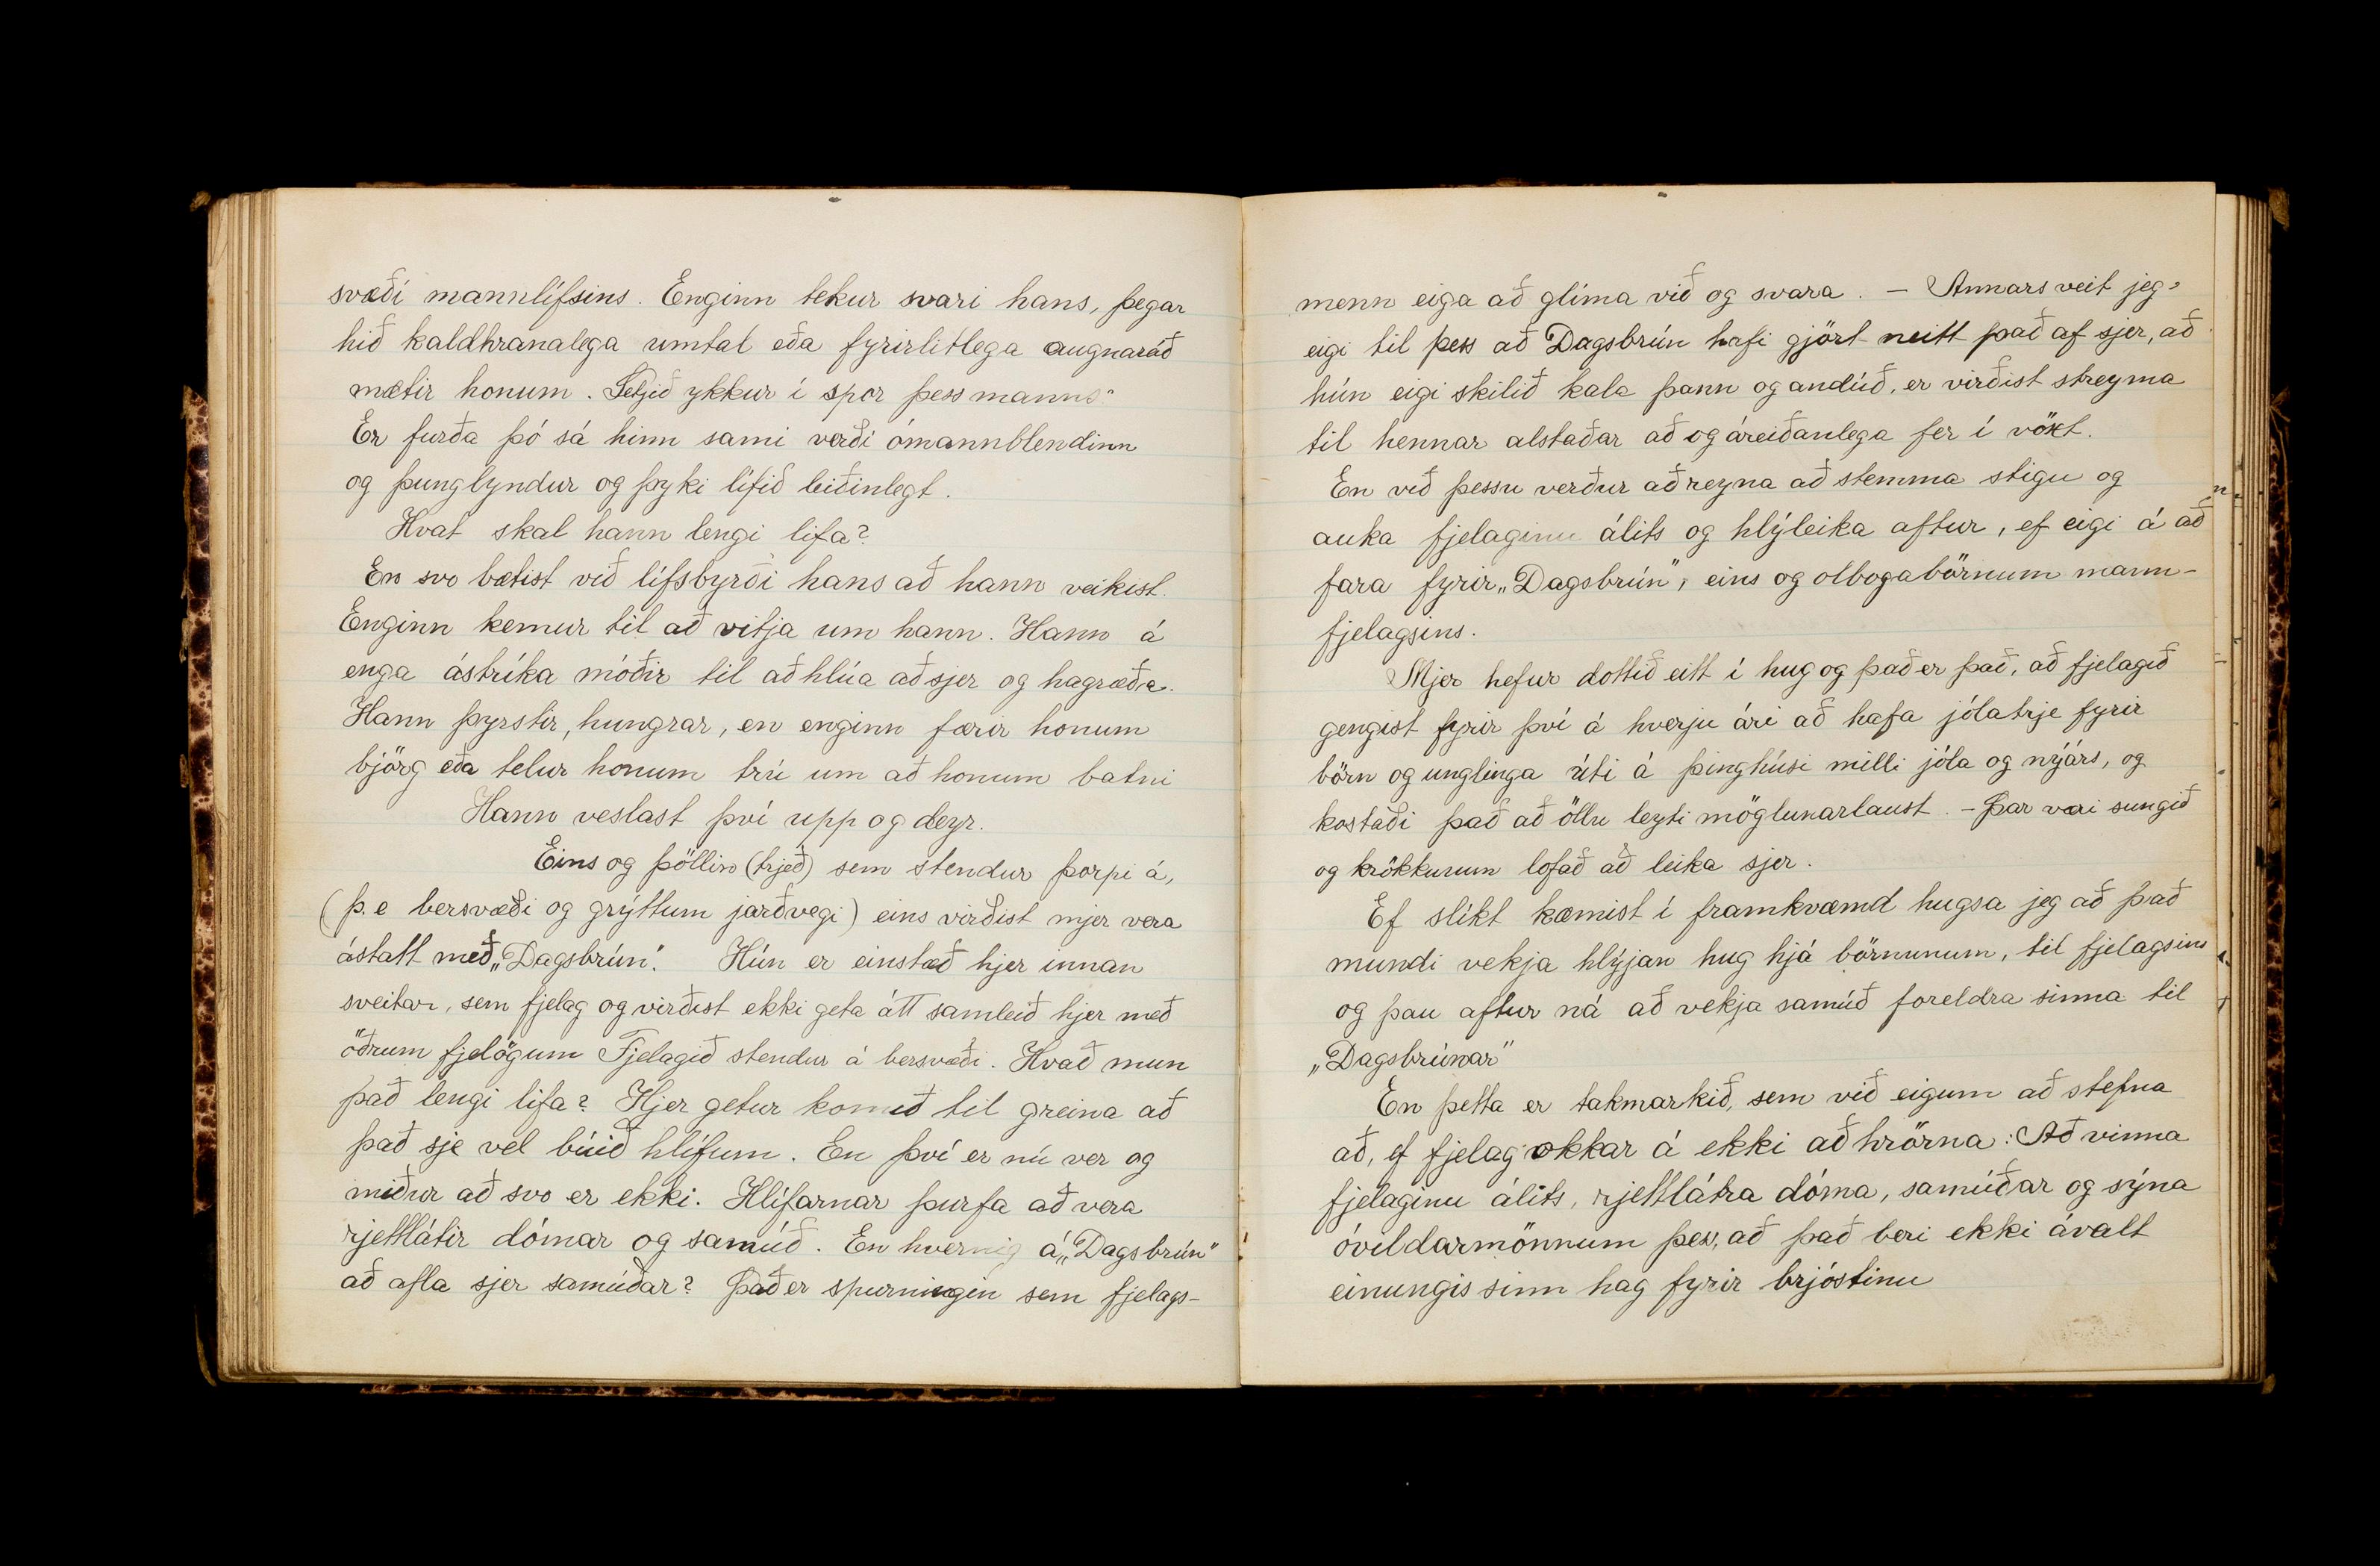 svæði mannlífsins. Enginn tekur svari hans, þegar
hið kaldhranalega umtal eða fyrirlitlega augnaráð
mætir honum. Setjið ykkur í spor þess manns.
Er furða þó sá hinn sami verði ómannblendinn
og þunglyndur og þyki lífið leiðinlegt.
Hvat skal hann lengi lifa?
En svo bætist við lífsbyrði hans að hann veikist.
Enginn kemur til að vitja um hann. Hann á
enga ástríka móðir til að hlúa að sjer og hagræða.
Hann þyrstir, hungrar, en enginn færir honum
björg eða telur honum trú um að honum batni
Hann veslast því upp og deyr.
Eins og þöllin (trjeð) sem stendur þorpi á,
(þ.e bersvæði og grýttum jarðvegi) eins virðist mjer vera
ástatt með „Dagsbrún“. Hún er einstæð hjer innan
sveitar, sem fjelag og virðist ekki geta átt samleið hjer með
öðrum fjelögum Fjelagið stendur á bersvæði. Hvað mun
það lengi lifa? Hjer getur komið til greina að
það sje vel búið hlífum. En því er nú ver og
miður að svo er ekki. Hlífarnar þurfa að vera
rjettlátir dómar og samúð. En hvernig á „Dagsbrún“
að afla sjer samúðar? Það er spurningin sem fjelags-
menn eiga að glíma við og svara. - Annars veit jeg
eigi til þess að Dagsbrún hafi gjört neitt það af sjer, að
hún eigi skilið kala þann og andúð, er virðist streyma
til hennar alstaðar að og áreiðanlega fer í vöxt.
En við þessu verður að reyna að stemma stigu og
auka fjelaginu álits og hlýleika aftur, ef eigi á að
fara fyrir „Dagsbrún“, eins og olbogabörnum mann-
fjelagsins.
Mjer hefur dottið eitt í hug og það er það, að fjelagið
gengist fyrir því á hverju ári að hafa jólatrje fyrir
börn og unglinga úti á þinghúsi milli jóla og nýárs, og
kostaði það að öllu leyti möglunarlaust. - Þar væri sungið
og krökkunum lofað að leika sjer.
Ef slíkt kæmist í framkvæmd hugsa jeg að það
mundi vekja hlýjan hug hjá börnunum, til fjelagsins
og þau aftur ná að vekja samúð foreldra sinna til
„Dagsbrúnar“
En þetta er takmarkið, sem við eigum að stefna
að, ef fjelag okkar á ekki að hrörna: Að vinna
fjelaginu álits, rjettlátra dóma, samúðar og sýna
óvildarmönnum þess, að það beri ekki ávalt
einungis sinn hag fyrir brjóstinu